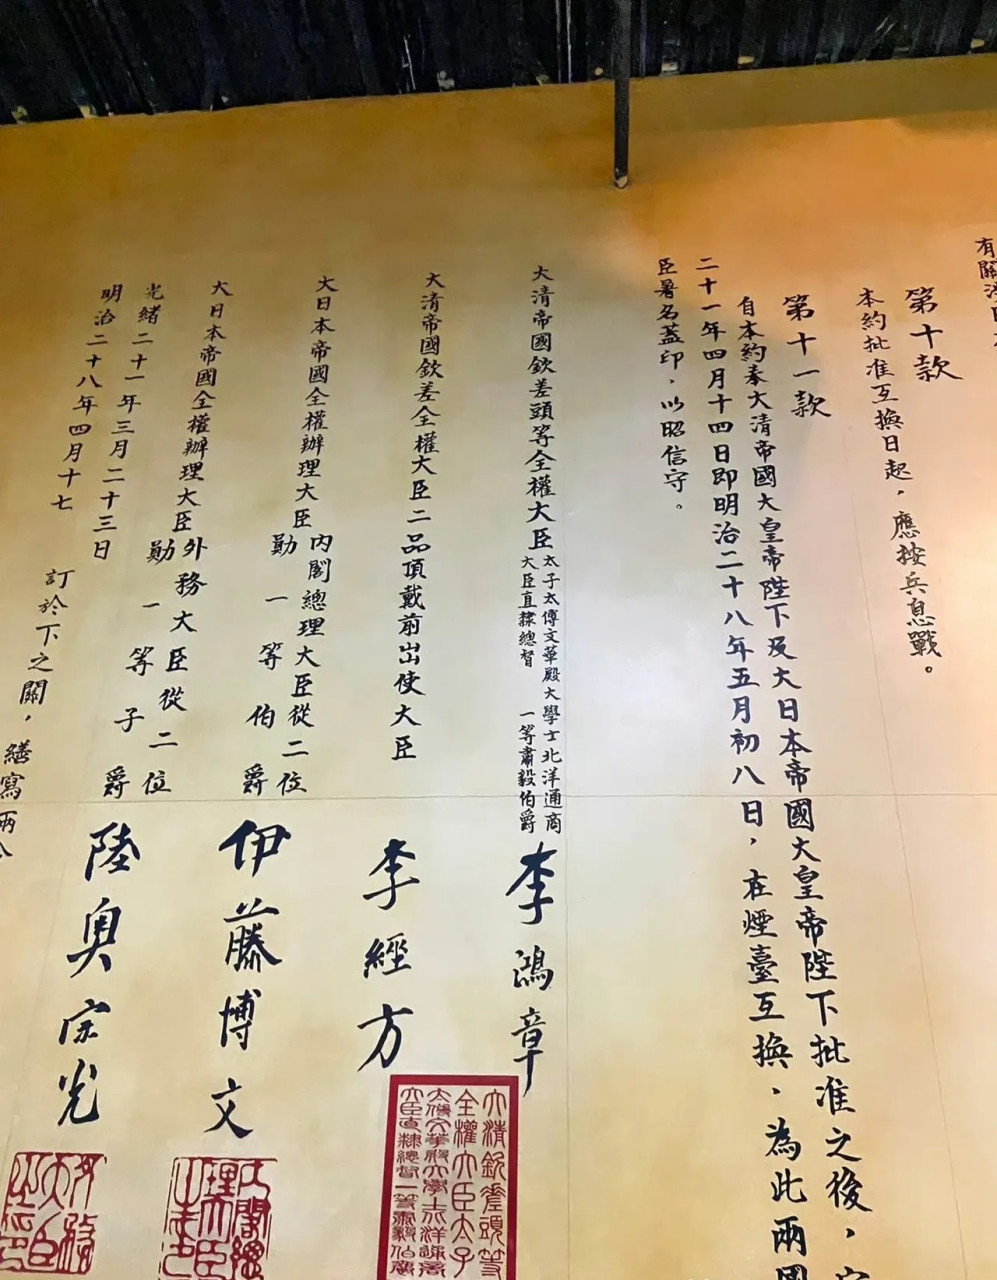 有關
第十款
本約批准互換日起，應按兵息戰。
第十一款
自本約奉大清帝國大皇帝陛下及大日本帝國大皇帝陛下批准之後，定
二十一年四月十四日即明治二十八年五月初八日，在煙臺互換。為此兩國
臣署名蓋印，以昭信守。
大清帝國欽差頭等全權大臣
太子太傅文華殿大學士北洋通商
大臣直隸總督 一等肅毅伯爵
李鴻章
大清帝國欽差全權大臣二品頂戴前出使大臣
李經方
大日本帝國全權辦理大臣
內閣總理大臣從二位
勛一等伯爵
伊藤博文
大日本帝國全權辦理大臣
外務大臣從二位
勛一等子爵
陸奧宗光
光緒二十一年三月二十三日
明治二十八年四月十七
訂於下之關，繕寫兩
大清欽差頭等
全權大臣太子
太傅文華殿大學士北洋通商
大臣直隸總督一等肅毅伯爵